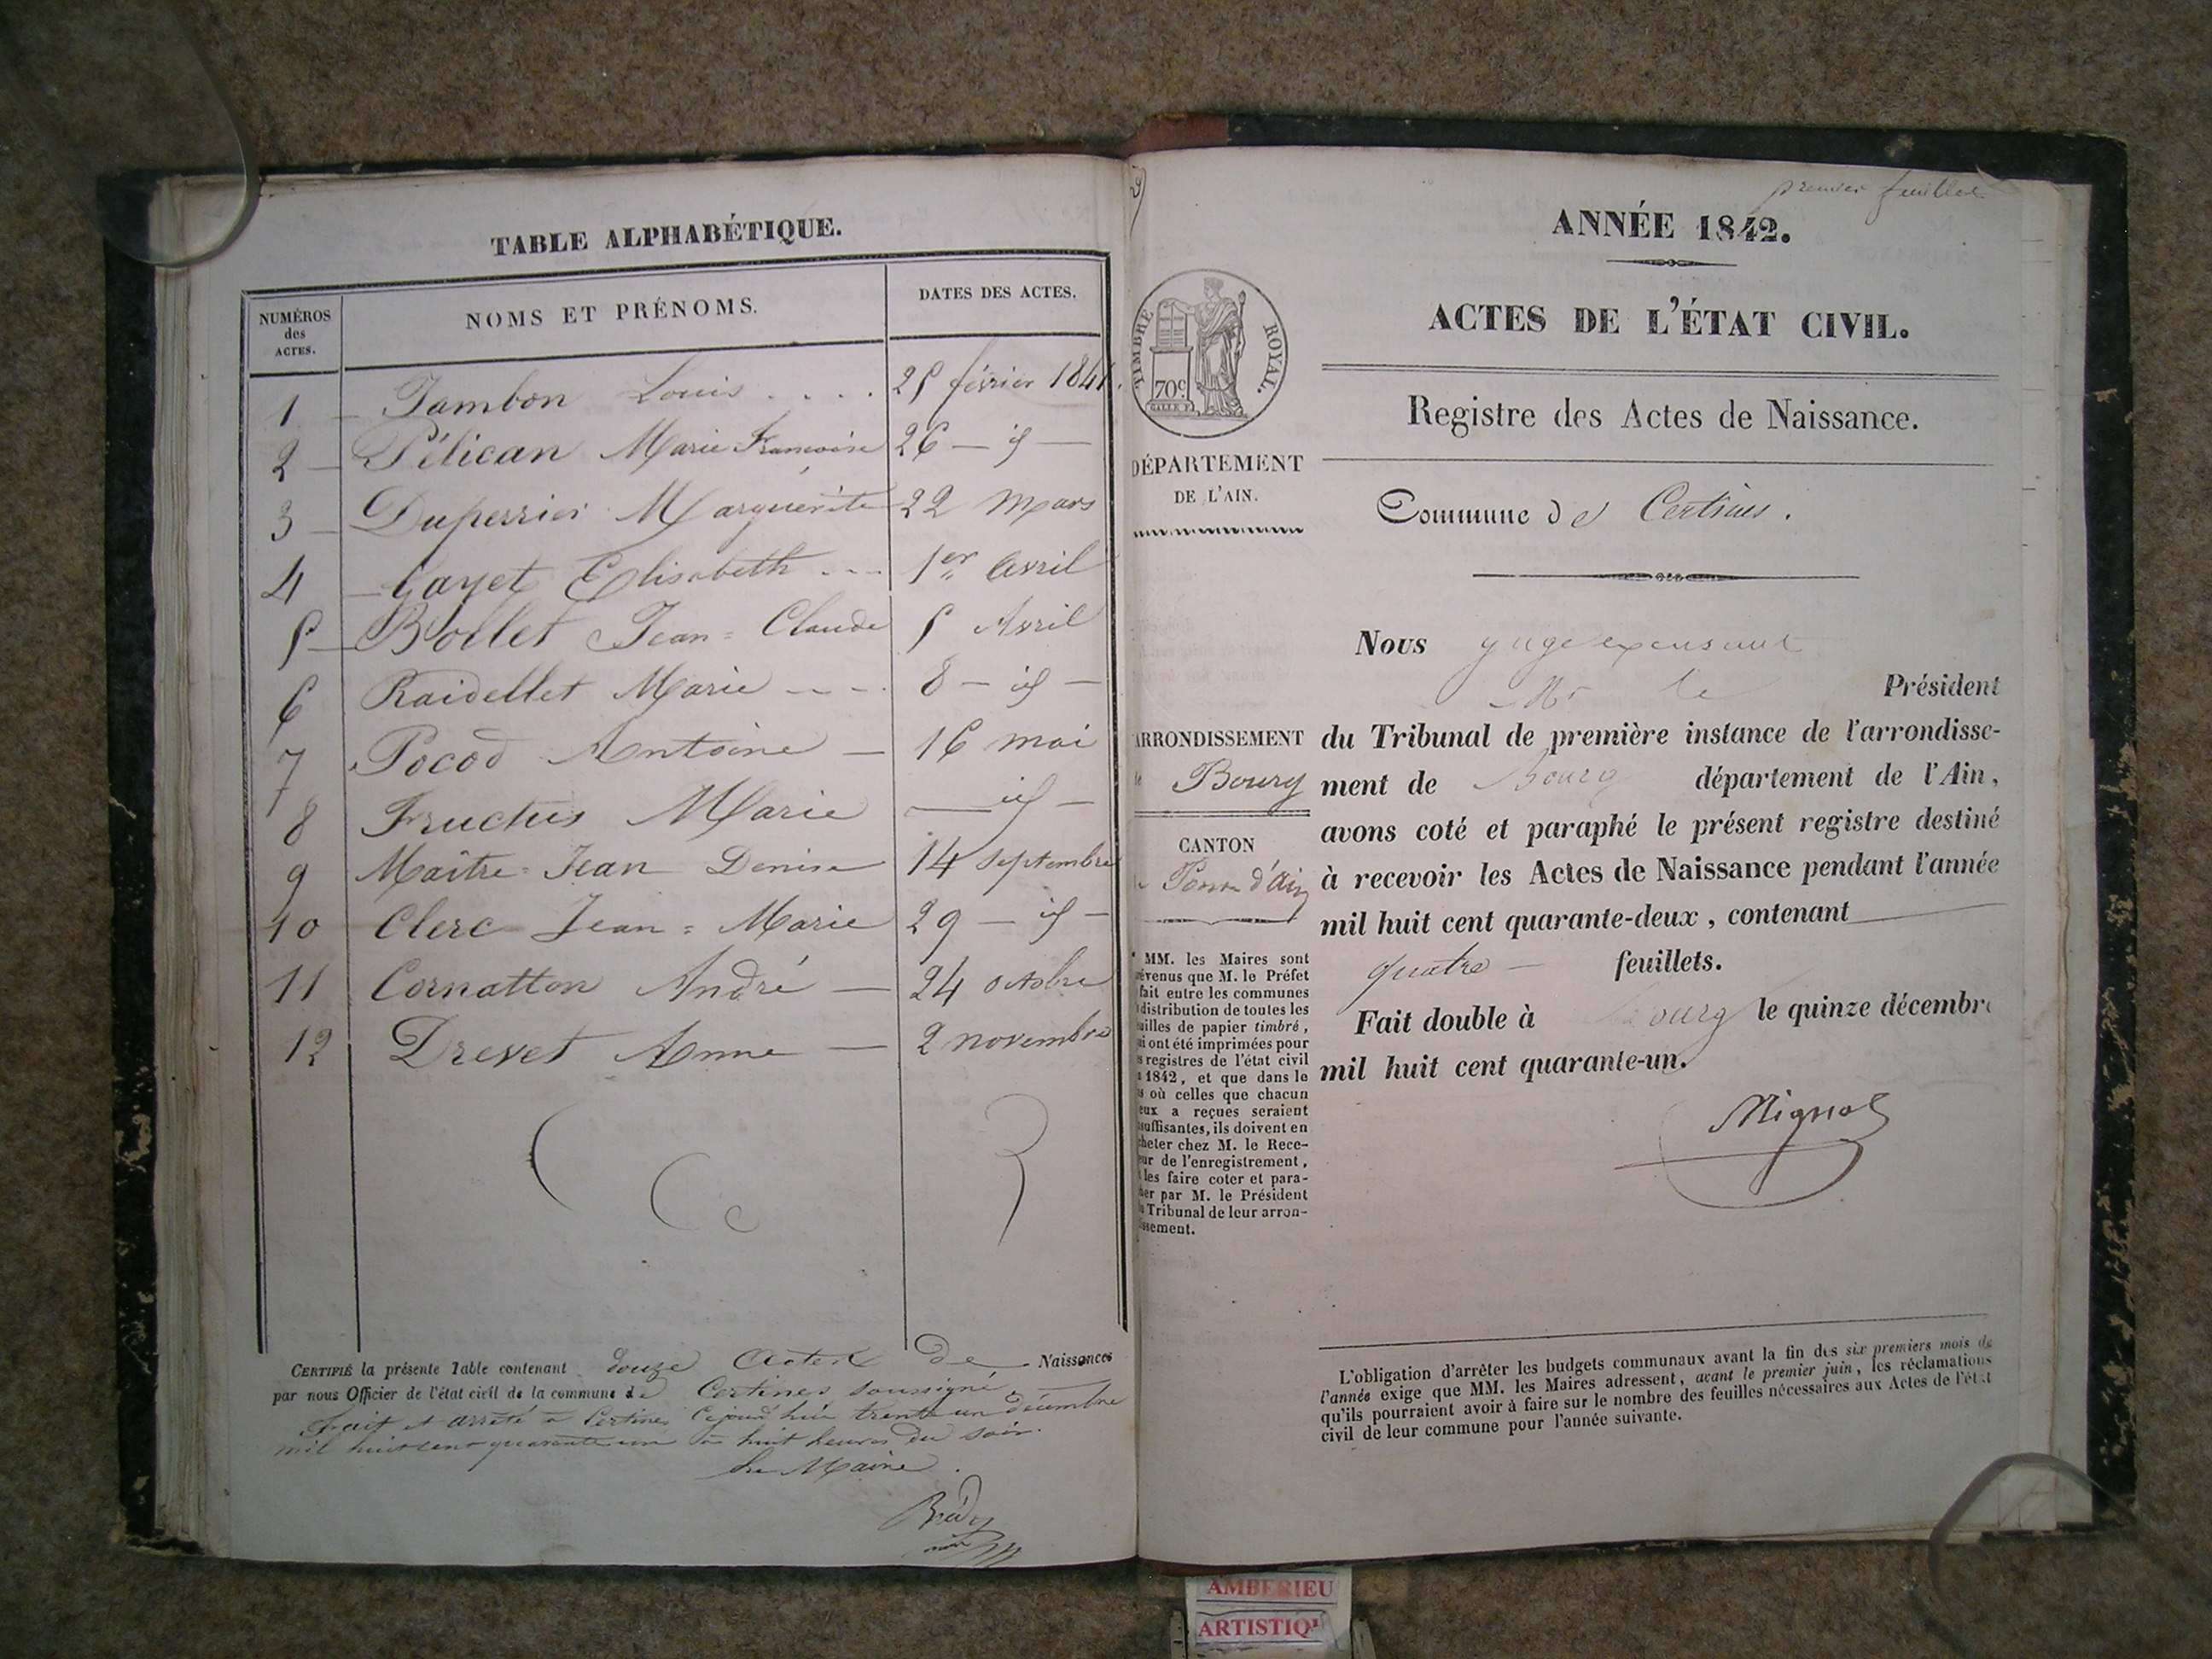 TABLE ALPHABÉTIQUE.
NUMÉROS des ACTES.
NOMS ET PRÉNOMS.
DATES DES ACTES.
1 Jambon Louis . . . . 25 février 1841.
2 Pélican Marie Francoise 26 — id —
3 Duperrier Marguerite 22 Mars
4 Gayet Elisabeth - - - 1er Avril
5 Bollet Jean = Claude 5 Avril
6 Raidellet Marie - - - 8 — id —
7 Pocod Antoine — 16 mai
8 Fructus Marie — id —
9 Maître Jean Denise 14 septembre
10 Clerc Jean = Marie 29 — id —
11 Cornatton André — 24 octobre
12 Drevet Anne — 2 novembre
CERTIFIÉ la présente Table contenant douze Actes de Naissances
par nous Officier de l'état civil de la commune de Certines soussigné.
Fait et arrêté à Certines cejourd'hui trente un décembre
mil huit cent quarante un à huit heures du soir.
Le Maire.
premier feuillet
ANNÉE 1842.
ACTES DE L'ÉTAT CIVIL.
Registre des Actes de Naissance.
Commune de Certines.
TIMBRE ROYAL.
70c.
DÉPARTEMENT
DE L'AIN.
ARRONDISSEMENT
Bourg
CANTON
Pont d'Ain
MM. les Maires sont
évenus que M. le Préfet
fait entre les communes
distribution de toutes les
uilles de papier timbré,
ui ont été imprimées pour
s registres de l'état civil
1842, et que dans le
s où celles que chacun
eux a reçues seraient
suffisantes, ils doivent en
heter chez M. le Rece-
ur de l'enregistrement,
les faire coter et para-
her par M. le Président
Tribunal de leur arron-
issement.
Nous
Mr le Président
du Tribunal de première instance de l'arrondisse-
ment de Bourg département de l'Ain,
avons coté et paraphé le présent registre destiné
à recevoir les Actes de Naissance pendant l'année
mil huit cent quarante-deux, contenant
quatre — feuillets.
Fait double à Bourg le quinze décembre
mil huit cent quarante-un.
L'obligation d'arrêter les budgets communaux avant la fin des six premiers mois de
l'année exige que MM. les Maires adressent, avant le premier juin, les réclamations
qu'ils pourraient avoir à faire sur le nombre des feuilles nécessaires aux Actes de l'état
civil de leur commune pour l'année suivante.
AMBERIEU
ARTISTIQ